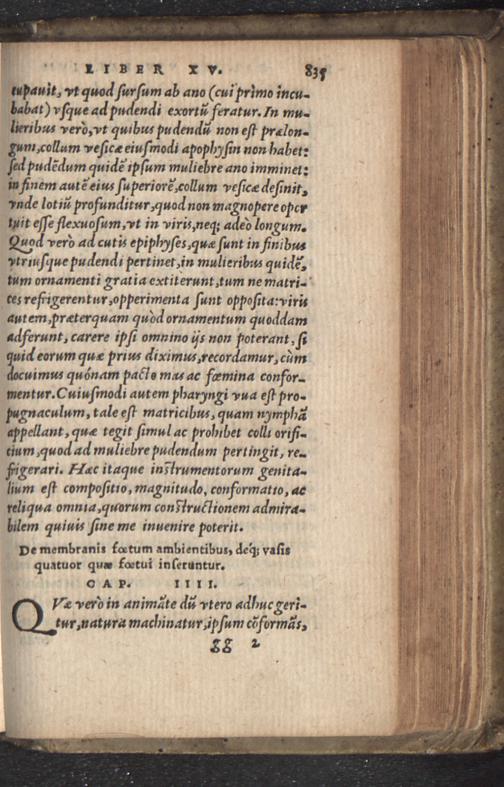 LIBER XV. 835
tupauit, vt quod sursum ab ano (cui primo incu-
babat) vsque ad pudendi exortũ feratur. In mu-
lieribus vero, vt quibus pudendũ non est prælon-
gum, collum vesicæ eiusmodi apophysin non habet:
sed pudẽdum quidẽ ipsum muliebre ano imminet:
in finem autẽ eius superiorẽ, collum vesicæ desinit,
vnde lotiũ profunditur, quod non magnopere opor
tuit esse flexuosum, vt in viris, neq; adeò longum.
Quod verò ad cutis epiphyses, quæ sunt in finibus
vtriusque pudendi pertinet, in mulieribus quidẽ,
tum ornamenti gratia extiterunt, tum ne matri-
ces refrigerentur, opperimenta sunt opposita: viris
autem, præterquam quòd ornamentum quoddam
adferunt, carere ipsi omnino ijs non poterant, si
quid eorum quæ prius diximus, recordamur, cùm
docuimus quónam pacto mas ac fœmina confor-
mentur. Cuiusmodi autem pharyngi vua est pro-
pugnaculum, tale est matricibus, quam nymphã
appellant, quæ tegit simul ac prohibet colli orifi-
cium, quod ad muliebre pudendum pertingit, re-
frigerari. Hæc itaque instrumentorum genita-
lium est compositio, magnitudo, conformatio, ac
reliqua omnia, quorum constructionem admira-
bilem quiuis sine me inuenire poterit.
De membranis fœtum ambientibus, déq; vasis
quatuor quæ fœtui inseruntur.
CAP. IIII.
QVæ verò in animãte dũ vtero adhuc geri-
tur, natura machinatur, ipsum cõformãs,
gg 2